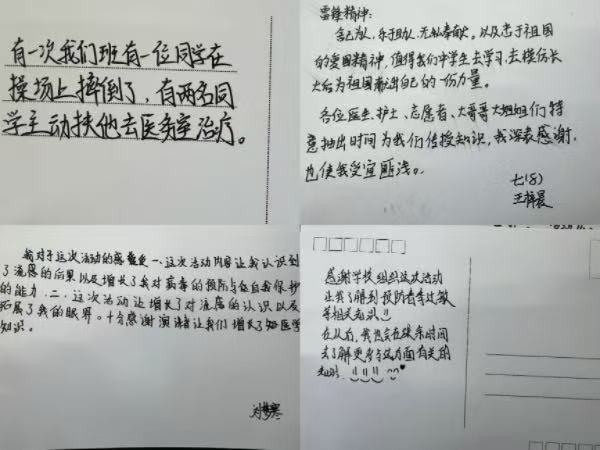 有一次我们班有一位同学在
操场上摔倒了，有两名同
学主动扶他去医务室治疗。
雷锋精神：
舍己为人，乐于助人，无私奉献。以及忠于祖国
的爱国精神，值得我们中学生去学习，去模仿长
大后为祖国献出自己的一份力量。
各位医生、护士、志愿者、大哥哥大姐姐们特
意抽出时间为我们传授知识，我深表感谢，
也使我受益匪浅。
七(8)
王梓晨
我对于这次活动的感受一.这次活动内容让我认识到
了流感的后果以及增长了我对病毒的预防与在自我保护
的能力.二.这次活动让增长了对流感的认识以及
拓展了我的眼界。十分感谢演讲者让我们增长了医学
知识。
刘梦寒
感谢学校组织这次活动
让我了解到预防春季过敏
等相关知识！！
在从后，我也会在课余时间
去了解更多与这方面有关的
知识.